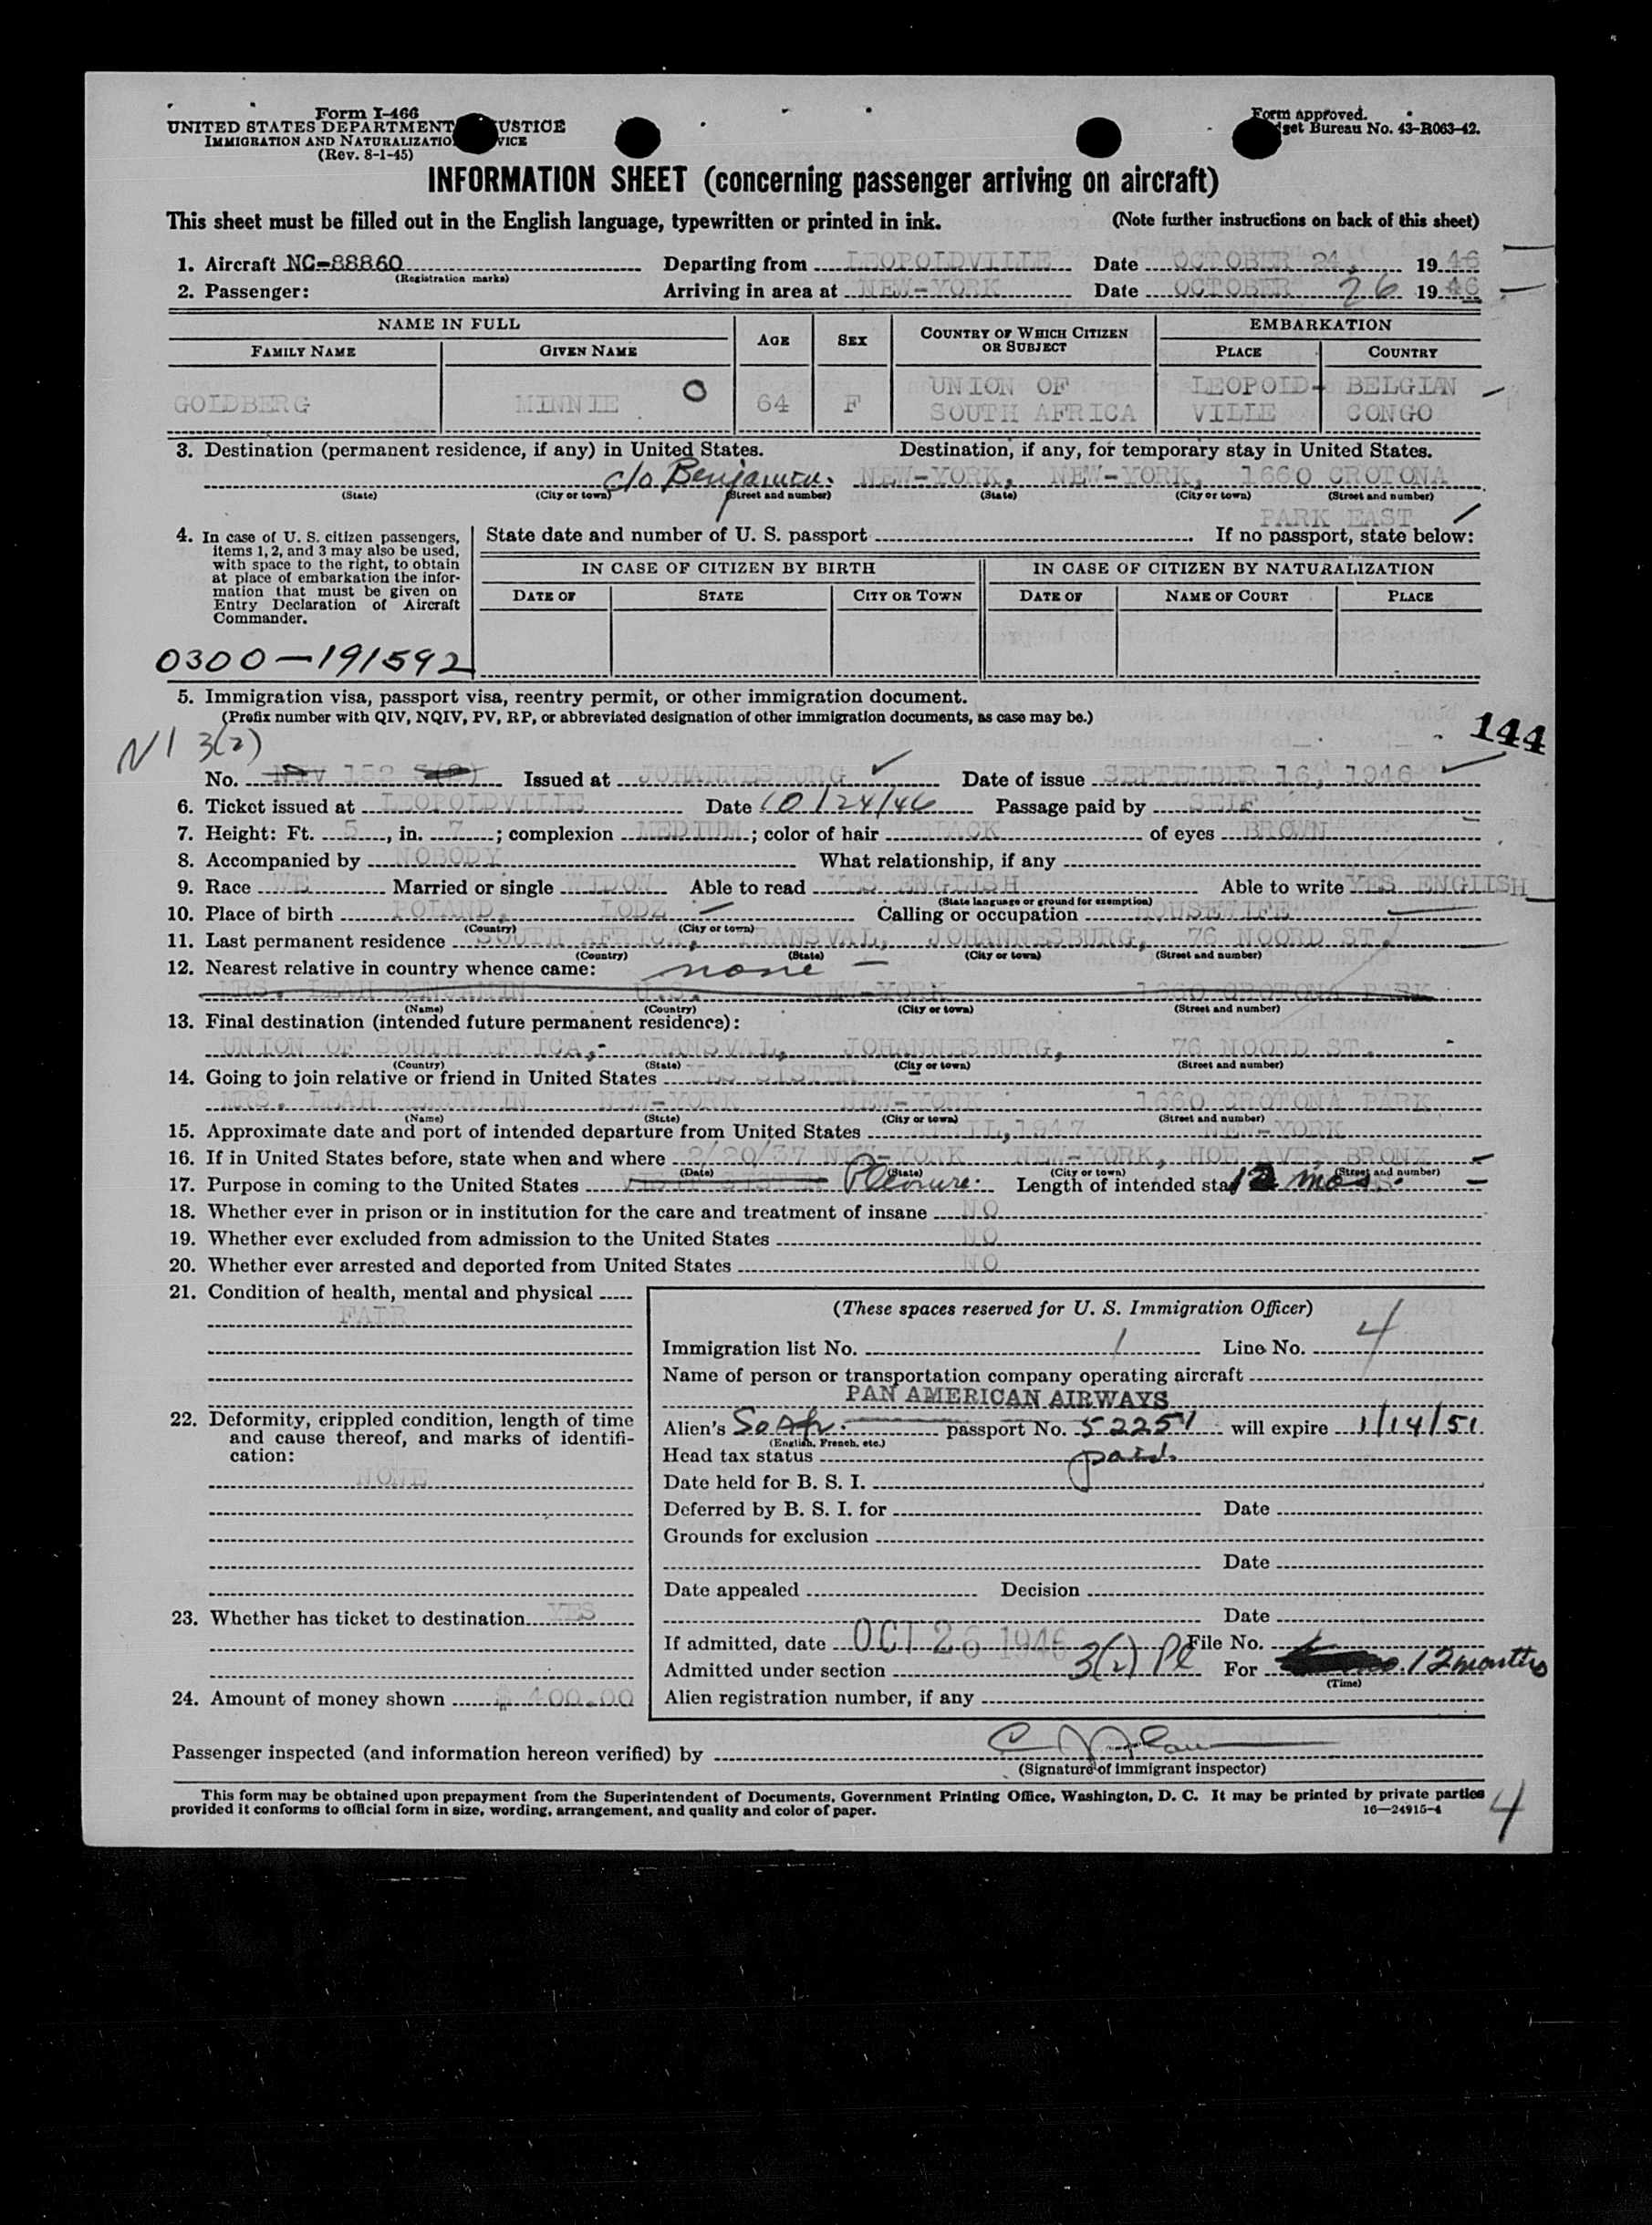 Form I-466
UNITED STATES DEPARTMENT USTICE
IMMIGRATION AND NATURALIZATIO VICE
(Rev. 8-1-45)
Form approved.
get Bureau No. 43-R063-42.
INFORMATION SHEET (concerning passenger arriving on aircraft)
This sheet must be filled out in the English language, typewritten or printed in ink. (Note further instructions on back of this sheet)
1. Aircraft NC-88860 Departing from LEOPOLDVILLE Date OCTOBER 24, 19 46
(Registration marks)
2. Passenger: Arriving in area at NEW-YORK Date OCTOBER 26 19 46
NAME IN FULL AGE SEX COUNTRY OF WHICH CITIZEN OR SUBJECT EMBARKATION
FAMILY NAME GIVEN NAME PLACE COUNTRY
GOLDBERG MINNIE O 64 F UNION OF SOUTH AFRICA LEOPOLD-VILLE BELGIAN CONGO
3. Destination (permanent residence, if any) in United States. Destination, if any, for temporary stay in United States.
c/o Benjamin. NEW-YORK, NEW-YORK, 1660 CROTONA
(State) (City or town) (Street and number) (State) (City or town) (Street and number)
PARK EAST
4. In case of U. S. citizen passengers, items 1, 2, and 3 may also be used, with space to the right, to obtain at place of embarkation the information that must be given on Entry Declaration of Aircraft Commander.
State date and number of U. S. passport If no passport, state below:
IN CASE OF CITIZEN BY BIRTH IN CASE OF CITIZEN BY NATURALIZATION
DATE OF STATE CITY OR TOWN DATE OF NAME OF COURT PLACE
0300-191592
5. Immigration visa, passport visa, reentry permit, or other immigration document.
(Prefix number with QIV, NQIV, PV, RP, or abbreviated designation of other immigration documents, as case may be.)
144
NI 3(2)
No. NIV 152 3(2) Issued at JOHANNESBURG Date of issue SEPTEMBER 16, 1946
6. Ticket issued at LEOPOLDVILLE Date 10/24/46 Passage paid by SELF
7. Height: Ft. 5, in. 7; complexion MEDIUM; color of hair BLACK of eyes BROWN
8. Accompanied by NOBODY What relationship, if any
9. Race WE Married or single WIDOW Able to read YES ENGLISH Able to write YES ENGLISH
(State language or ground for exemption)
10. Place of birth POLAND, LODZ Calling or occupation HOUSEWIFE
(Country) (City or town)
11. Last permanent residence SOUTH AFRICA, TRANSVAL, JOHANNESBURG, 76 NOORD ST.
(Country) (State) (City or town) (Street and number)
12. Nearest relative in country whence came: none
MRS. LEAH BENJAMIN U.S. NEW-YORK 1660 CROTONA PARK
(Name) (Country) (City or town) (Street and number)
13. Final destination (intended future permanent residence):
UNION OF SOUTH AFRICA, TRANSVAL, JOHANNESBURG, 76 NOORD ST.
(Country) (State) (City or town) (Street and number)
14. Going to join relative or friend in United States YES SISTER
MRS. LEAH BENJAMIN NEW-YORK NEW-YORK 1660 CROTONA PARK
(Name) (State) (City or town) (Street and number)
15. Approximate date and port of intended departure from United States 1947 NEW-YORK
16. If in United States before, state when and where 2/20/37 NEW-YORK NEW-YORK, HOE AVE. BRONX
(Date) (State) (City or town) (Street and number)
17. Purpose in coming to the United States VISIT SISTER Pleasure. Length of intended sta 12 mos.
18. Whether ever in prison or in institution for the care and treatment of insane NO
19. Whether ever excluded from admission to the United States NO
20. Whether ever arrested and deported from United States NO
21. Condition of health, mental and physical
FAIR
22. Deformity, crippled condition, length of time and cause thereof, and marks of identification:
NONE
23. Whether has ticket to destination YES
24. Amount of money shown $ 400.00
(These spaces reserved for U. S. Immigration Officer)
Immigration list No. 1 Line No. 4
Name of person or transportation company operating aircraft
PAN AMERICAN AIRWAYS
Alien's So Afr. passport No. 52251 will expire 1/14/51
(English, French, etc.)
Head tax status paid.
Date held for B. S. I.
Deferred by B. S. I. for Date
Grounds for exclusion
Date
Date appealed Decision
Date
If admitted, date OCT 26 1946 File No.
Admitted under section 3(2) Pl For 12 months
(Time)
Alien registration number, if any
Passenger inspected (and information hereon verified) by
(Signature of immigrant inspector)
This form may be obtained upon prepayment from the Superintendent of Documents, Government Printing Office, Washington, D. C. It may be printed by private parties
provided it conforms to official form in size, wording, arrangement, and quality and color of paper. 16—24915-4
4